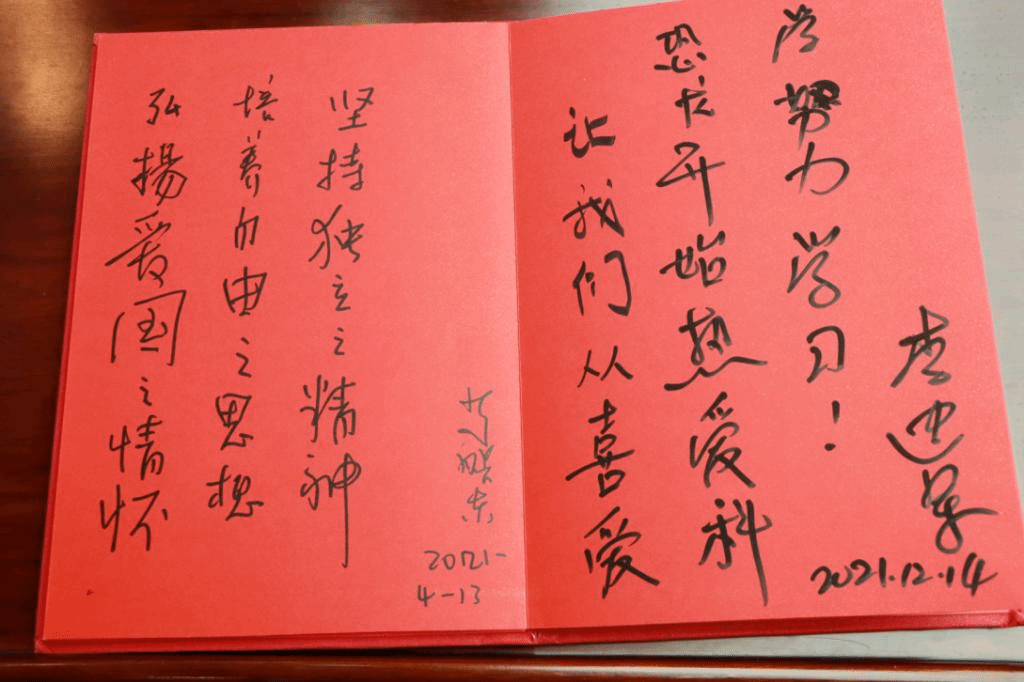 弘揚爱国之情怀
培养自由之思想
坚持独立之精神
2021-
4-13
让我们从喜爱
恐龙开始热爱科
学努力学习！
李建军
2021.12.14